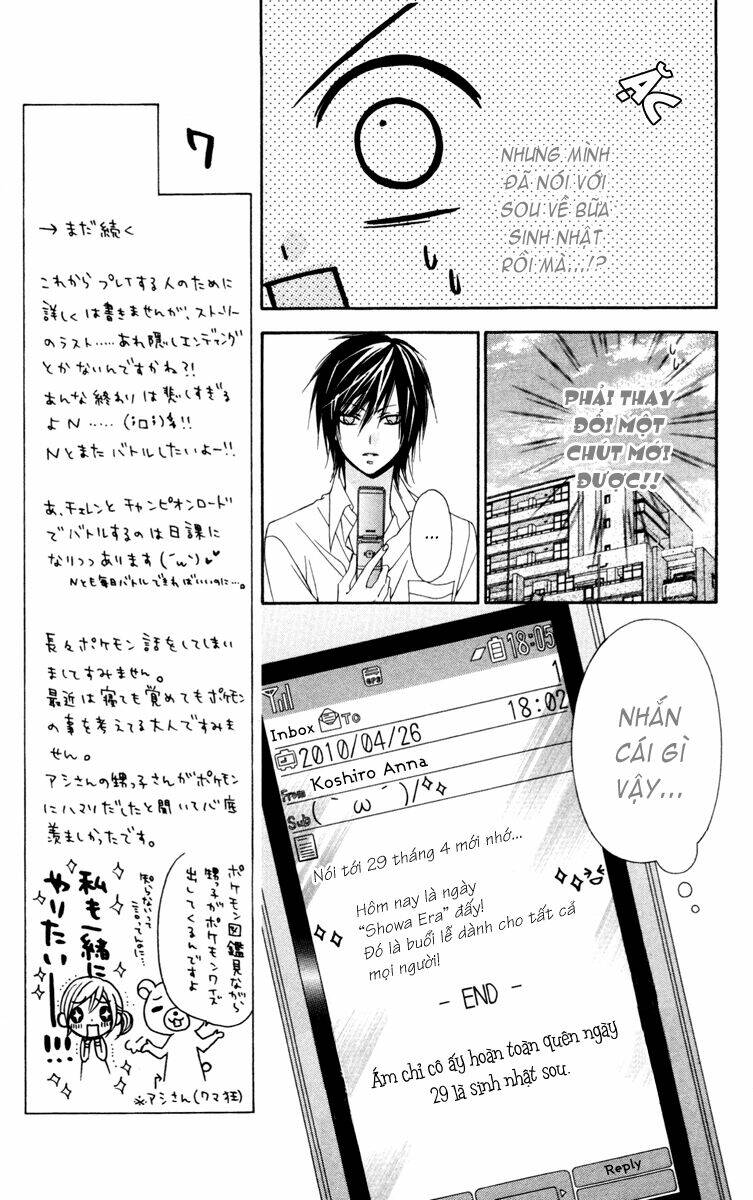 ẶC
NHƯNG MÌNH
ĐÃ NÓI VỚI
SOU VỀ BỮA
SINH NHẬT
RỒI MÀ...!?
PHẢI THAY
ĐỔI MỘT
CHÚT MỚI
ĐƯỢC!!
...
NHẮN
CÁI GÌ
VẬY...
18:05
1
Inbox To
18:02
2010/04/26
From Koshiro Anna
Sub (｀ω´)/
Nói tới 29 tháng 4 mới nhớ...
Hôm nay là ngày
“Showa Era” đấy!
Đó là buổi lễ dành cho tất cả
mọi người!
- END -
Ám chỉ cô ấy hoàn toàn quên ngày
29 là sinh nhật sou.
Reply
7
→まだ続く
これからプレイする人のために
詳しくは書きませんが、ストーリー
のラスト……あれ隠しエンディング
とかないんですかね?!
あんな終わりは悲しすぎる
よN……(;ロ;)!!
Nとまたバトルしたいよー!!
あ、チェレンとチャンピオンロード
でバトルするのは日課に
なりつつあります(´ω`)♥
Nとも毎日バトルできればいいのに…。
長々ポケモン話をしてしまい
ましてすみません。
最近は寝ても覚めてもポケモン
の事を考えてる大人ですみま
せん。
アシさんの甥っ子さんがポケモン
にハマりだしたと聞いて心底
羨ましかったです。
ポケモン図鑑見ながら
甥っ子がポケモンクイズ
出してくるんですよ
知らないって
言ってんのに…
私も一緒に
やりたいー!!!
※アシさん(クマ狂)